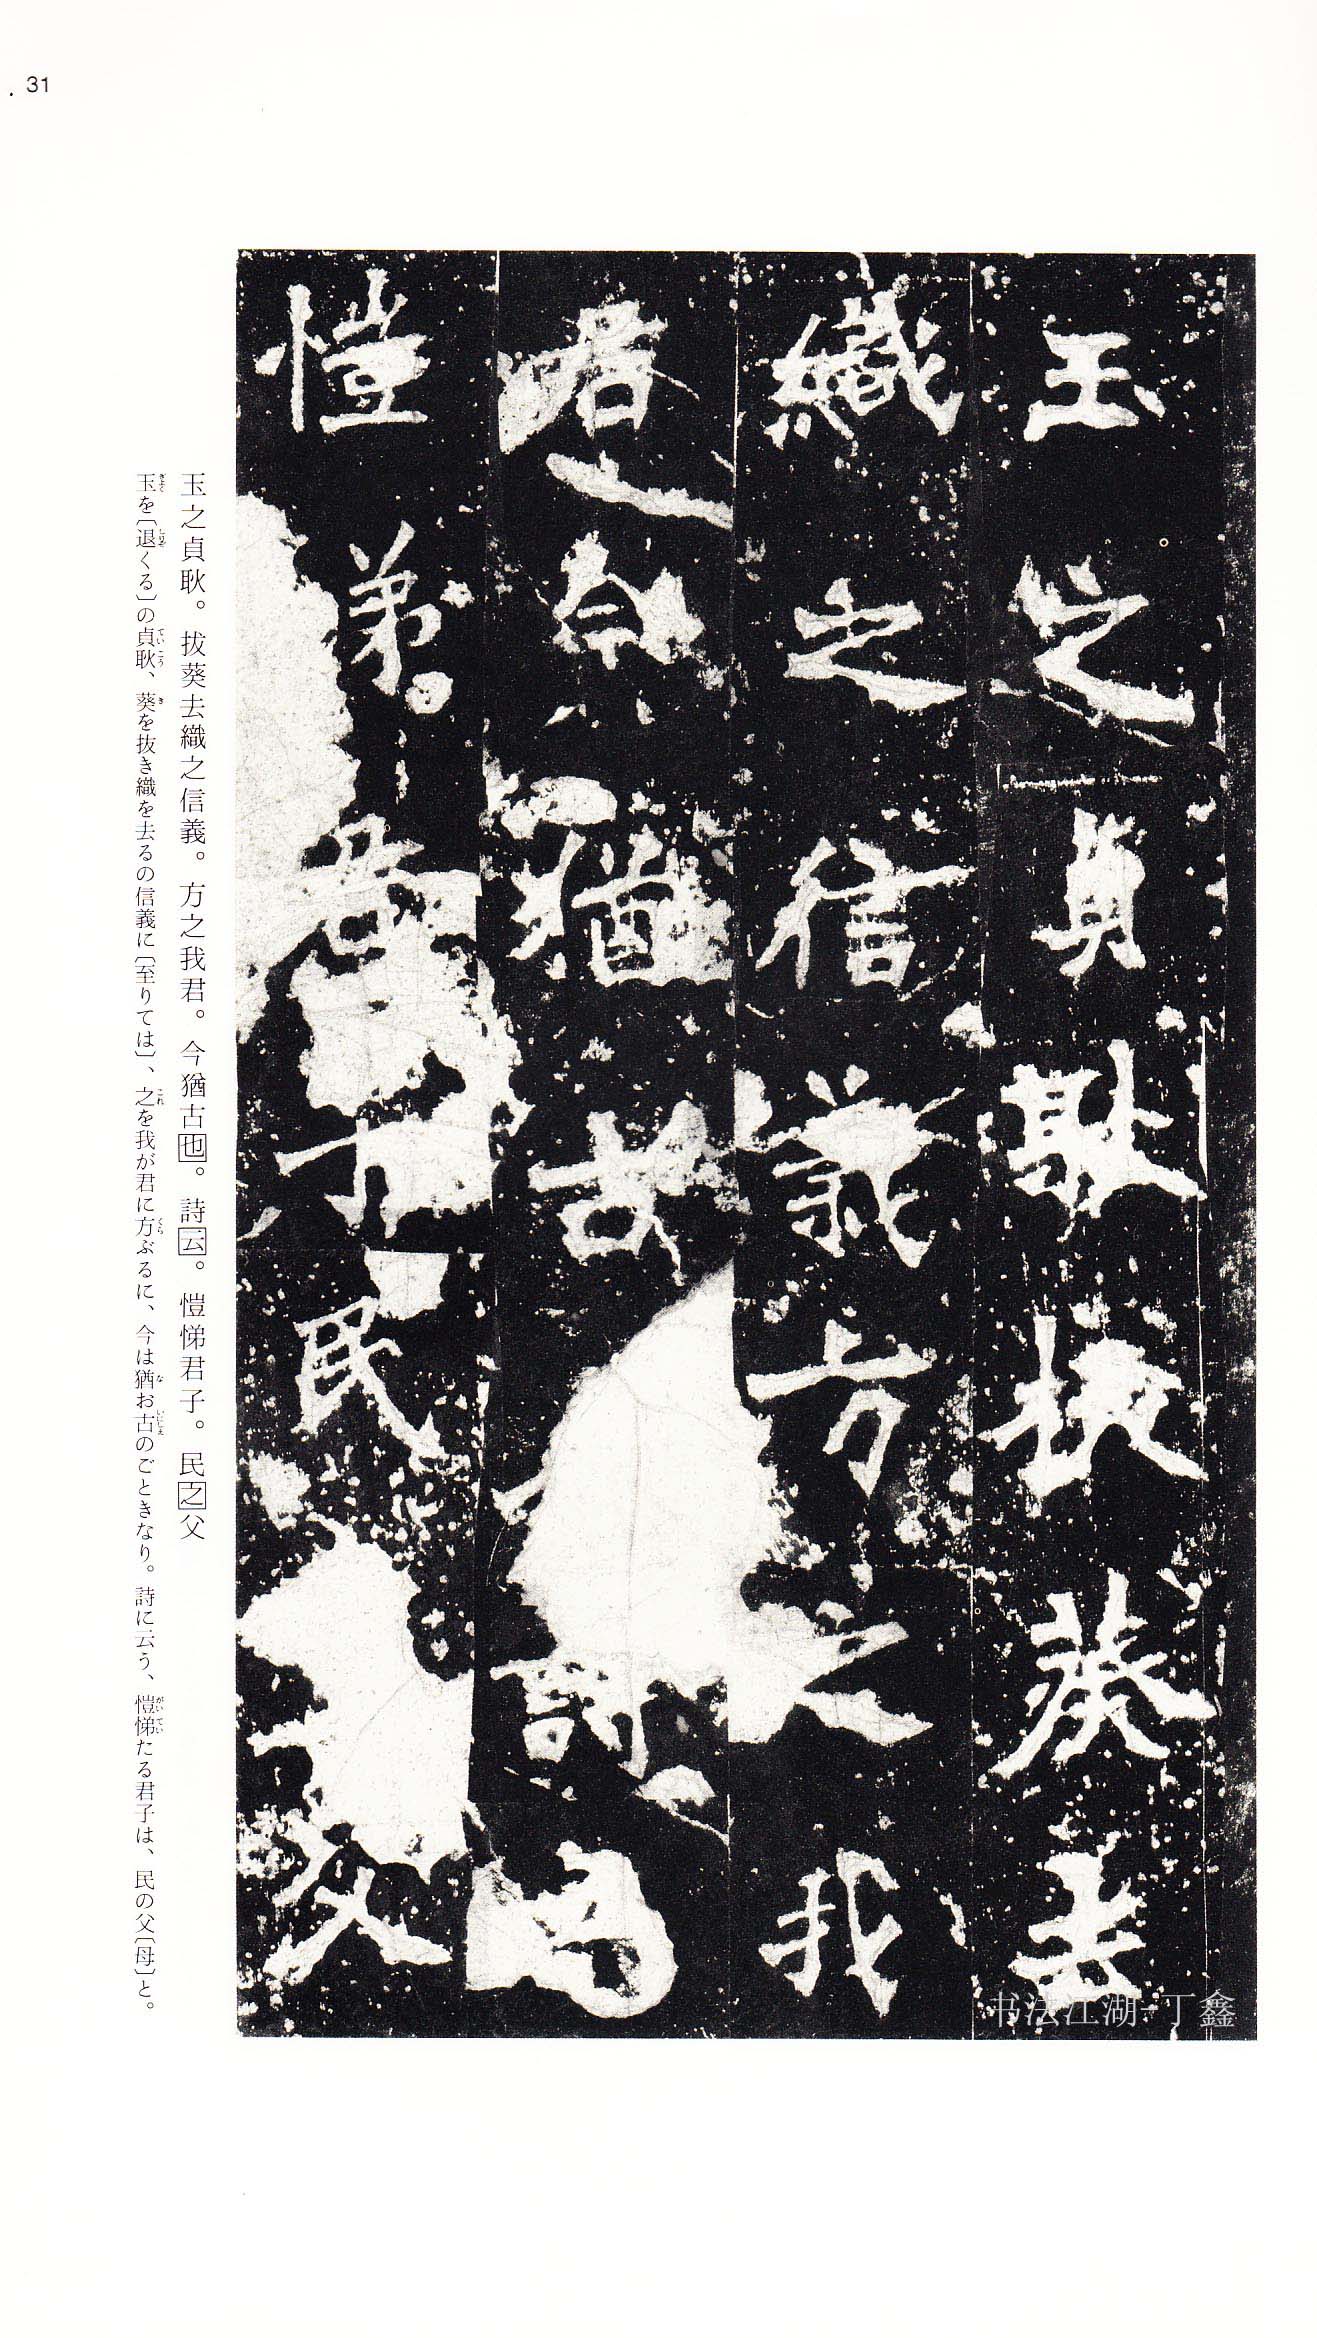 31
玉之貞耿拔葵去
織之信義方之我
君今猶古詩
愷弟君子民父
玉之貞耿。拔葵去織之信義。方之我君。今猶古也。詩云。愷悌君子。民之父
玉を〔退くる〕の貞耿、葵を抜き織を去るの信義に〔至りては〕、之を我が君に方ぶるに、今は猶お古のごときなり。詩に云う、愷悌たる君子は、民の父〔母〕と。
书法江湖-丁鑫